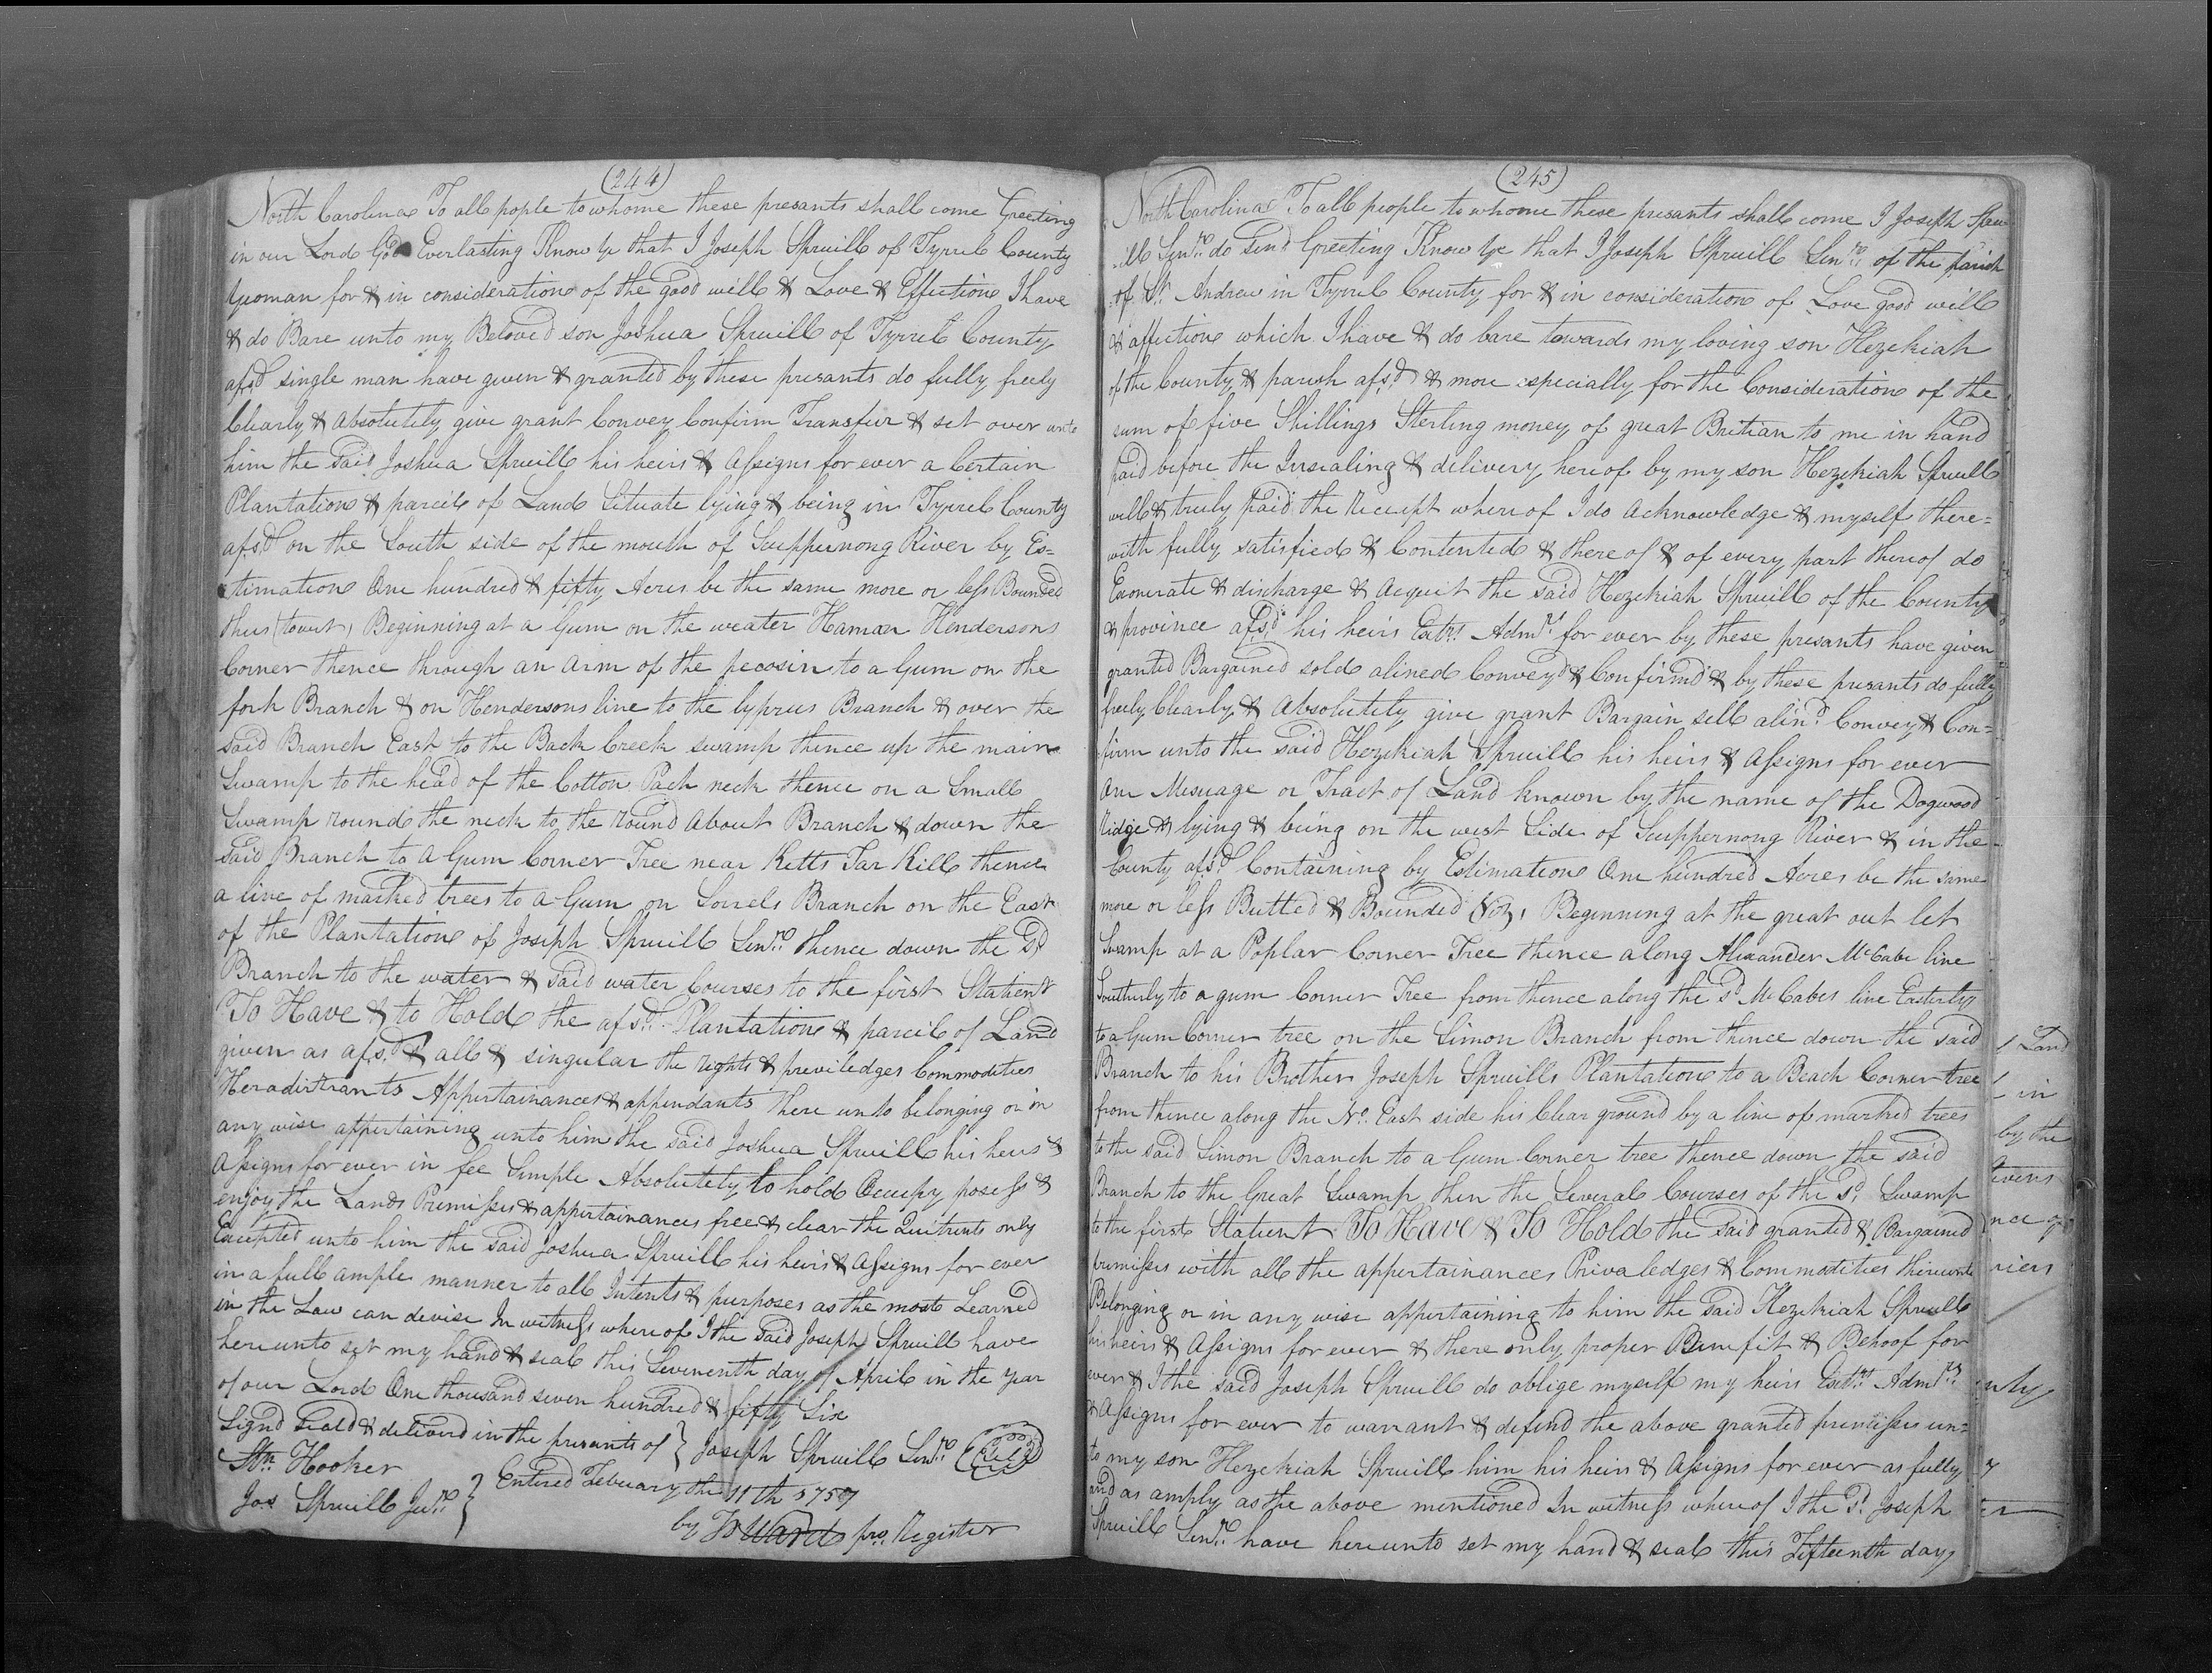 (244)
North Carolina To all pople to whome these presants shall come Greeting
in our Lord God Everlasting Know ye that I Joseph Spruill of Tyrrel County
yuoman for & in consideration of the good will & Love & Effection I have
& do Bare unto my Beloved son Joshua Spruill of Tyrrel County
afsd single man have given & granted by these presants do fully freely
Clearly & absolutely give grant Convey Confirm Transfur & set over unto
him the said Joshua Spruill his heirs & Assigns for ever a Certain
Plantation & parcel of Land Situate lying & being in Tyrrel County
afsd on the South side of the mouth of Scuppernong River by Es=
timation One hundred & fifty Acres be the same more or less Bounded
thus (towit) Beginning at a Gum on the weater Haman Hendersons
Corner thence through an arm of the pecosin to a Gum on the
fork Branch & on Hendersons line to the Cyprus Branch & over the
said Branch East to the Back Creek swamp thence up the main
Swamp to the head of the Cotton Pach neck thence on a Small
Swamp round the neck to the round About Branch & down the
said Branch to a Gum Corner Tree near Ketts Tar Kill thence
a line of marked trees to a Gum on Sorrels Branch on the East
of the Plantation of Joseph Spruill Senro thence down the sd
Branch to the water & said water Courses to the first Statient
To Have & to Hold the afsd Plantation & parcil of Land
given as afsd & all & singular the rights & previledges Commodities
Heradittrants Appertainances & appendants there unto belonging or in
any wise appertaining unto him the said Joshua Spruill his heirs &
Assigns for ever in fee Simple Absolutely to hold Occupy posess &
enjoy the Lands Premisses & appertainances free & clear the Quitrents only
Excepted unto him the said Joshua Spruill his heirs & Assigns for ever
in a full ample manner to all Intents & purposes as the most Learned
in the Law can devise In witness whereof I the said Joseph Spruill have
hereunto set my hand & seal this Sevententh day of April in the year
of our Lord One thousand seven hundred & fifty Six
Signd Seald & deliverd in the presants of } Joseph Spruill Senro (Seal)
Stn Hooker
Jos Spruill Junro } Entired Febuary the 11th 1757
by Jo Ward pro Register
(245)
North Carolina To all people to whome these presants shall come I Joseph Spru
ill Senro do send Greeting Know ye that I Joseph Spruill Senro of the parish
of St Andrew in Tyrrel County for & in consideration of Love good will
& affection which I have & do bare towards my loving son Hezekiah
of the County & parish afsd & more especially for the Consideration of the
sum of five Shillings Sterling money of great Britian to me in hand
paid before the Insealing & delivery hereof by my son Hezekiah Spruill
well & truly paid the Receipt whereof I do Acknowledge & myself there=
with fully satisfied & Contented & thereof & of every part thereof do
Exonerate & discharge & Acquit the said Hezekiah Spruill of the County
& province afsd his heirs Extrs Admrs for ever by these presants have given
granted Bargained sold alined Conveyd & Confirmd & by these presants do fully
freely Clearly & Absolutely give grant Bargain sell alind Convey & Con=
firm unto the said Hezekiah Spruill his heirs & Assigns for ever
One Mesuage or Tract of Land known by the name of the Dogwood
Ridge & lying & being on the west Side of Scuppernong River & in the
County afsd Containing by Estimation One hundred Acres be the same
more or less Butted & Bounded (Vizt) Beginning at the great out let
Swamp at a Poplar Corner Tree thence along Alixander McCabe line
Southerly to a gum Corner Tree from thence along the sd McCabes line Easterly
to a Gum Corner tree on the Simon Branch from thence down the said
Branch to his Brother Joseph Spruills Plantation to a Beach Corner tree
from thence along the No East side his Clear ground by a line of marked trees
to the said Simon Branch to a Gum Corner tree thence down the said
Branch to the Great Swamp then the Several Courses of the sd Swamp
to the first Statient To Have & To Hold the said granted & Bargained
premisses with all the appertainances Privaledges & Commodities thereunto
Belonging or in any wise appertaining to him the said Hezekiah Spruill
his heirs & Assigns for ever & there only proper Bennifit & Behoof for
ever & I the said Joseph Spruill do oblige myself my heirs Extrs Admrs
& Assigns for ever to warrant & defend the above granted premisses un=
to my son Hezekiah Spruill him his heirs & Assigns for ever as fully
and as amply as the above mentioned In witness whereof I the sd Joseph
Spruill Senro have hereunto set my hand & seal this Fifteenth day
Land
in
by the